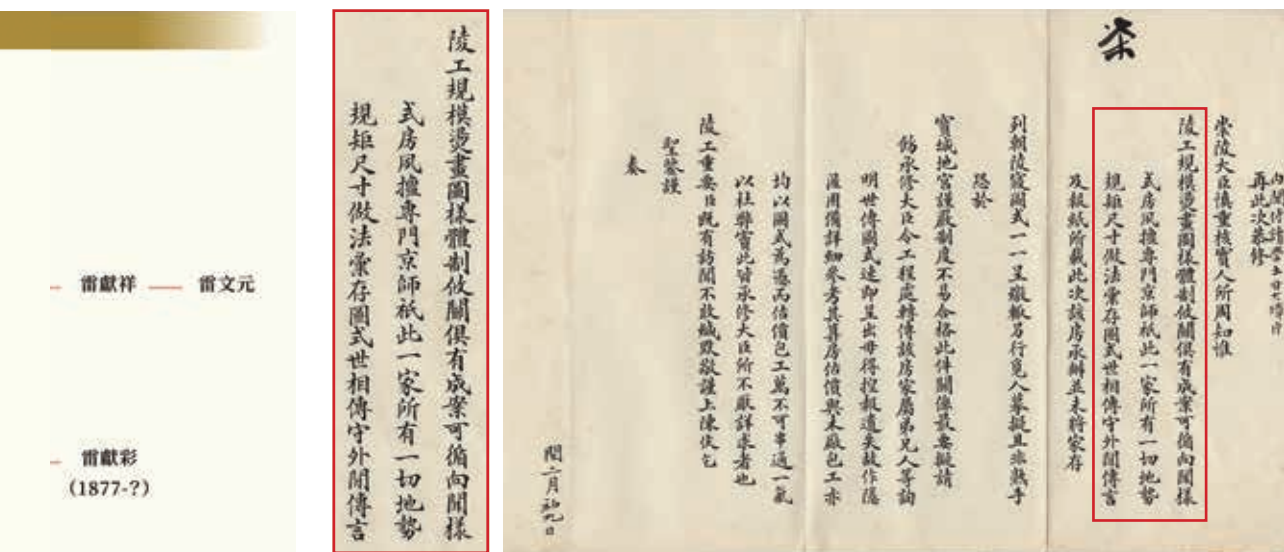 雷獻祥 — 雷文元
雷獻彩
(1877-?)
陵工規模燙畫圖樣體制攸關俱有成案可循向聞樣
式房風擅專門京師祇此一家所有一切地勢
規矩尺寸做法彙存圖式世相傳守外間傳言
再此次恭修
崇陵大臣慎重核實人所周知惟
陵工規模燙畫圖樣體制攸關俱有成案可循向聞樣
式房風擅專門京師祇此一家所有一切地勢
規矩尺寸做法彙存圖式世相傳守外間傳言
及報紙所載此次該房承辦並未將家存
列朝陵寢圖式一一呈繳輒另行覓人摹擬且非熟手
恐於
寶城地宮謹嚴制度不易合格此件關係最要擬請
飭承修大臣令工程處轉傳該房家屬弟兄人等詢
明世傳圖式速即呈出毋得控報遺失故作隱
匿用備詳細參考其算房估價與木廠包工亦
均以圖式為憑而估價包工萬不可串通一氣
以枉弊實此皆承修大臣所不厭詳求者也
陵工重要臣既有訪聞不敢緘默敬謹上陳伏乞
聖鑒謹
奏
閏二月初九日